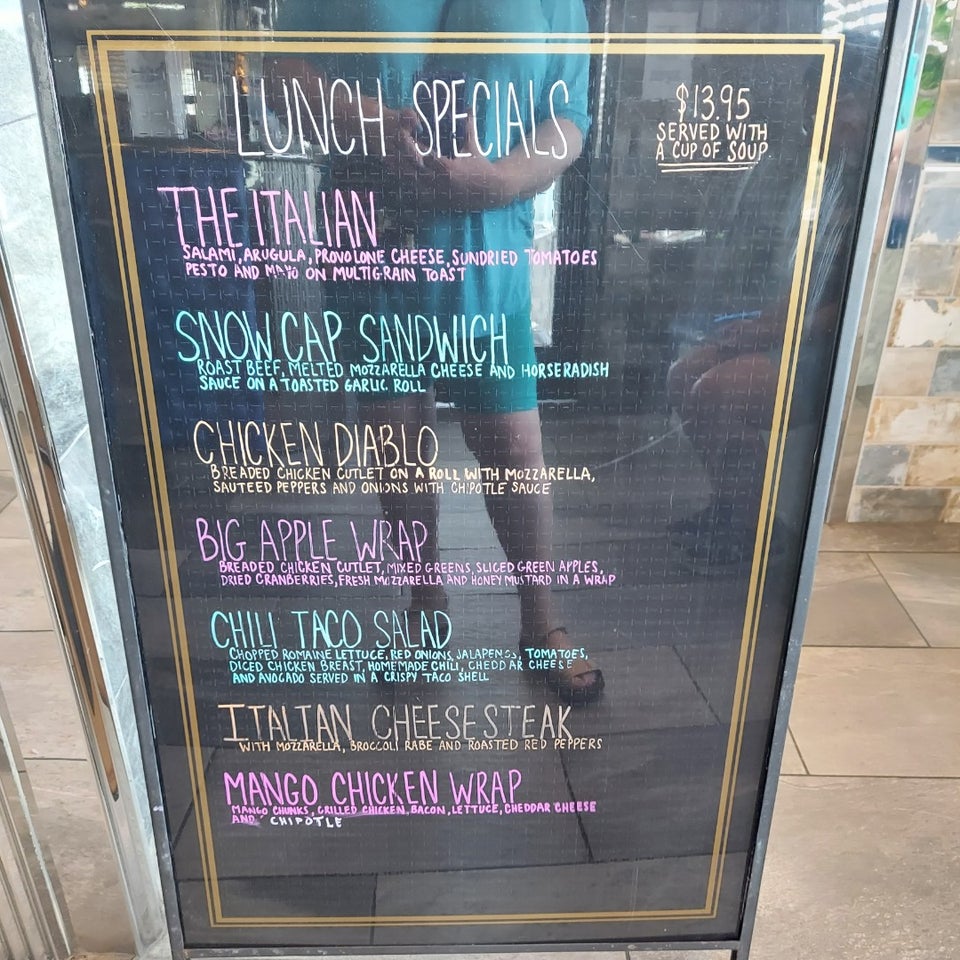 LUNCH SPECIALS
$13.95
SERVED WITH
A CUP OF SOUP
THE ITALIAN
SALAMI, ARUGULA, PROVOLONE CHEESE, SUNDRIED TOMATOES
PESTO AND MAYO ON MULTIGRAIN TOAST
SNOW CAP SANDWICH
ROAST BEEF, MELTED MOZZARELLA CHEESE AND HORSERADISH
SAUCE ON A TOASTED GARLIC ROLL
CHICKEN DIABLO
BREADED CHICKEN CUTLET ON A ROLL WITH MOZZARELLA,
SAUTEED PEPPERS AND ONIONS WITH CHIPOTLE SAUCE
BIG APPLE WRAP
BREADED CHICKEN CUTLET, MIXED GREENS, SLICED GREEN APPLES,
DRIED CRANBERRIES, FRESH MOZZARELLA AND HONEY MUSTARD IN A WRAP
CHILI TACO SALAD
CHOPPED ROMAINE LETTUCE, RED ONIONS, JALAPENOS, TOMATOES,
DICED CHICKEN BREAST, HOMEMADE CHILI, CHEDDAR CHEESE
AND AVOCADO SERVED IN A CRISPY TACO SHELL
ITALIAN CHEESESTEAK
WITH MOZZARELLA, BROCCOLI RABE AND ROASTED RED PEPPERS
MANGO CHICKEN WRAP
MANGO CHUNKS, GRILLED CHICKEN, BACON, LETTUCE, CHEDDAR CHEESE
AND CHIPOTLE